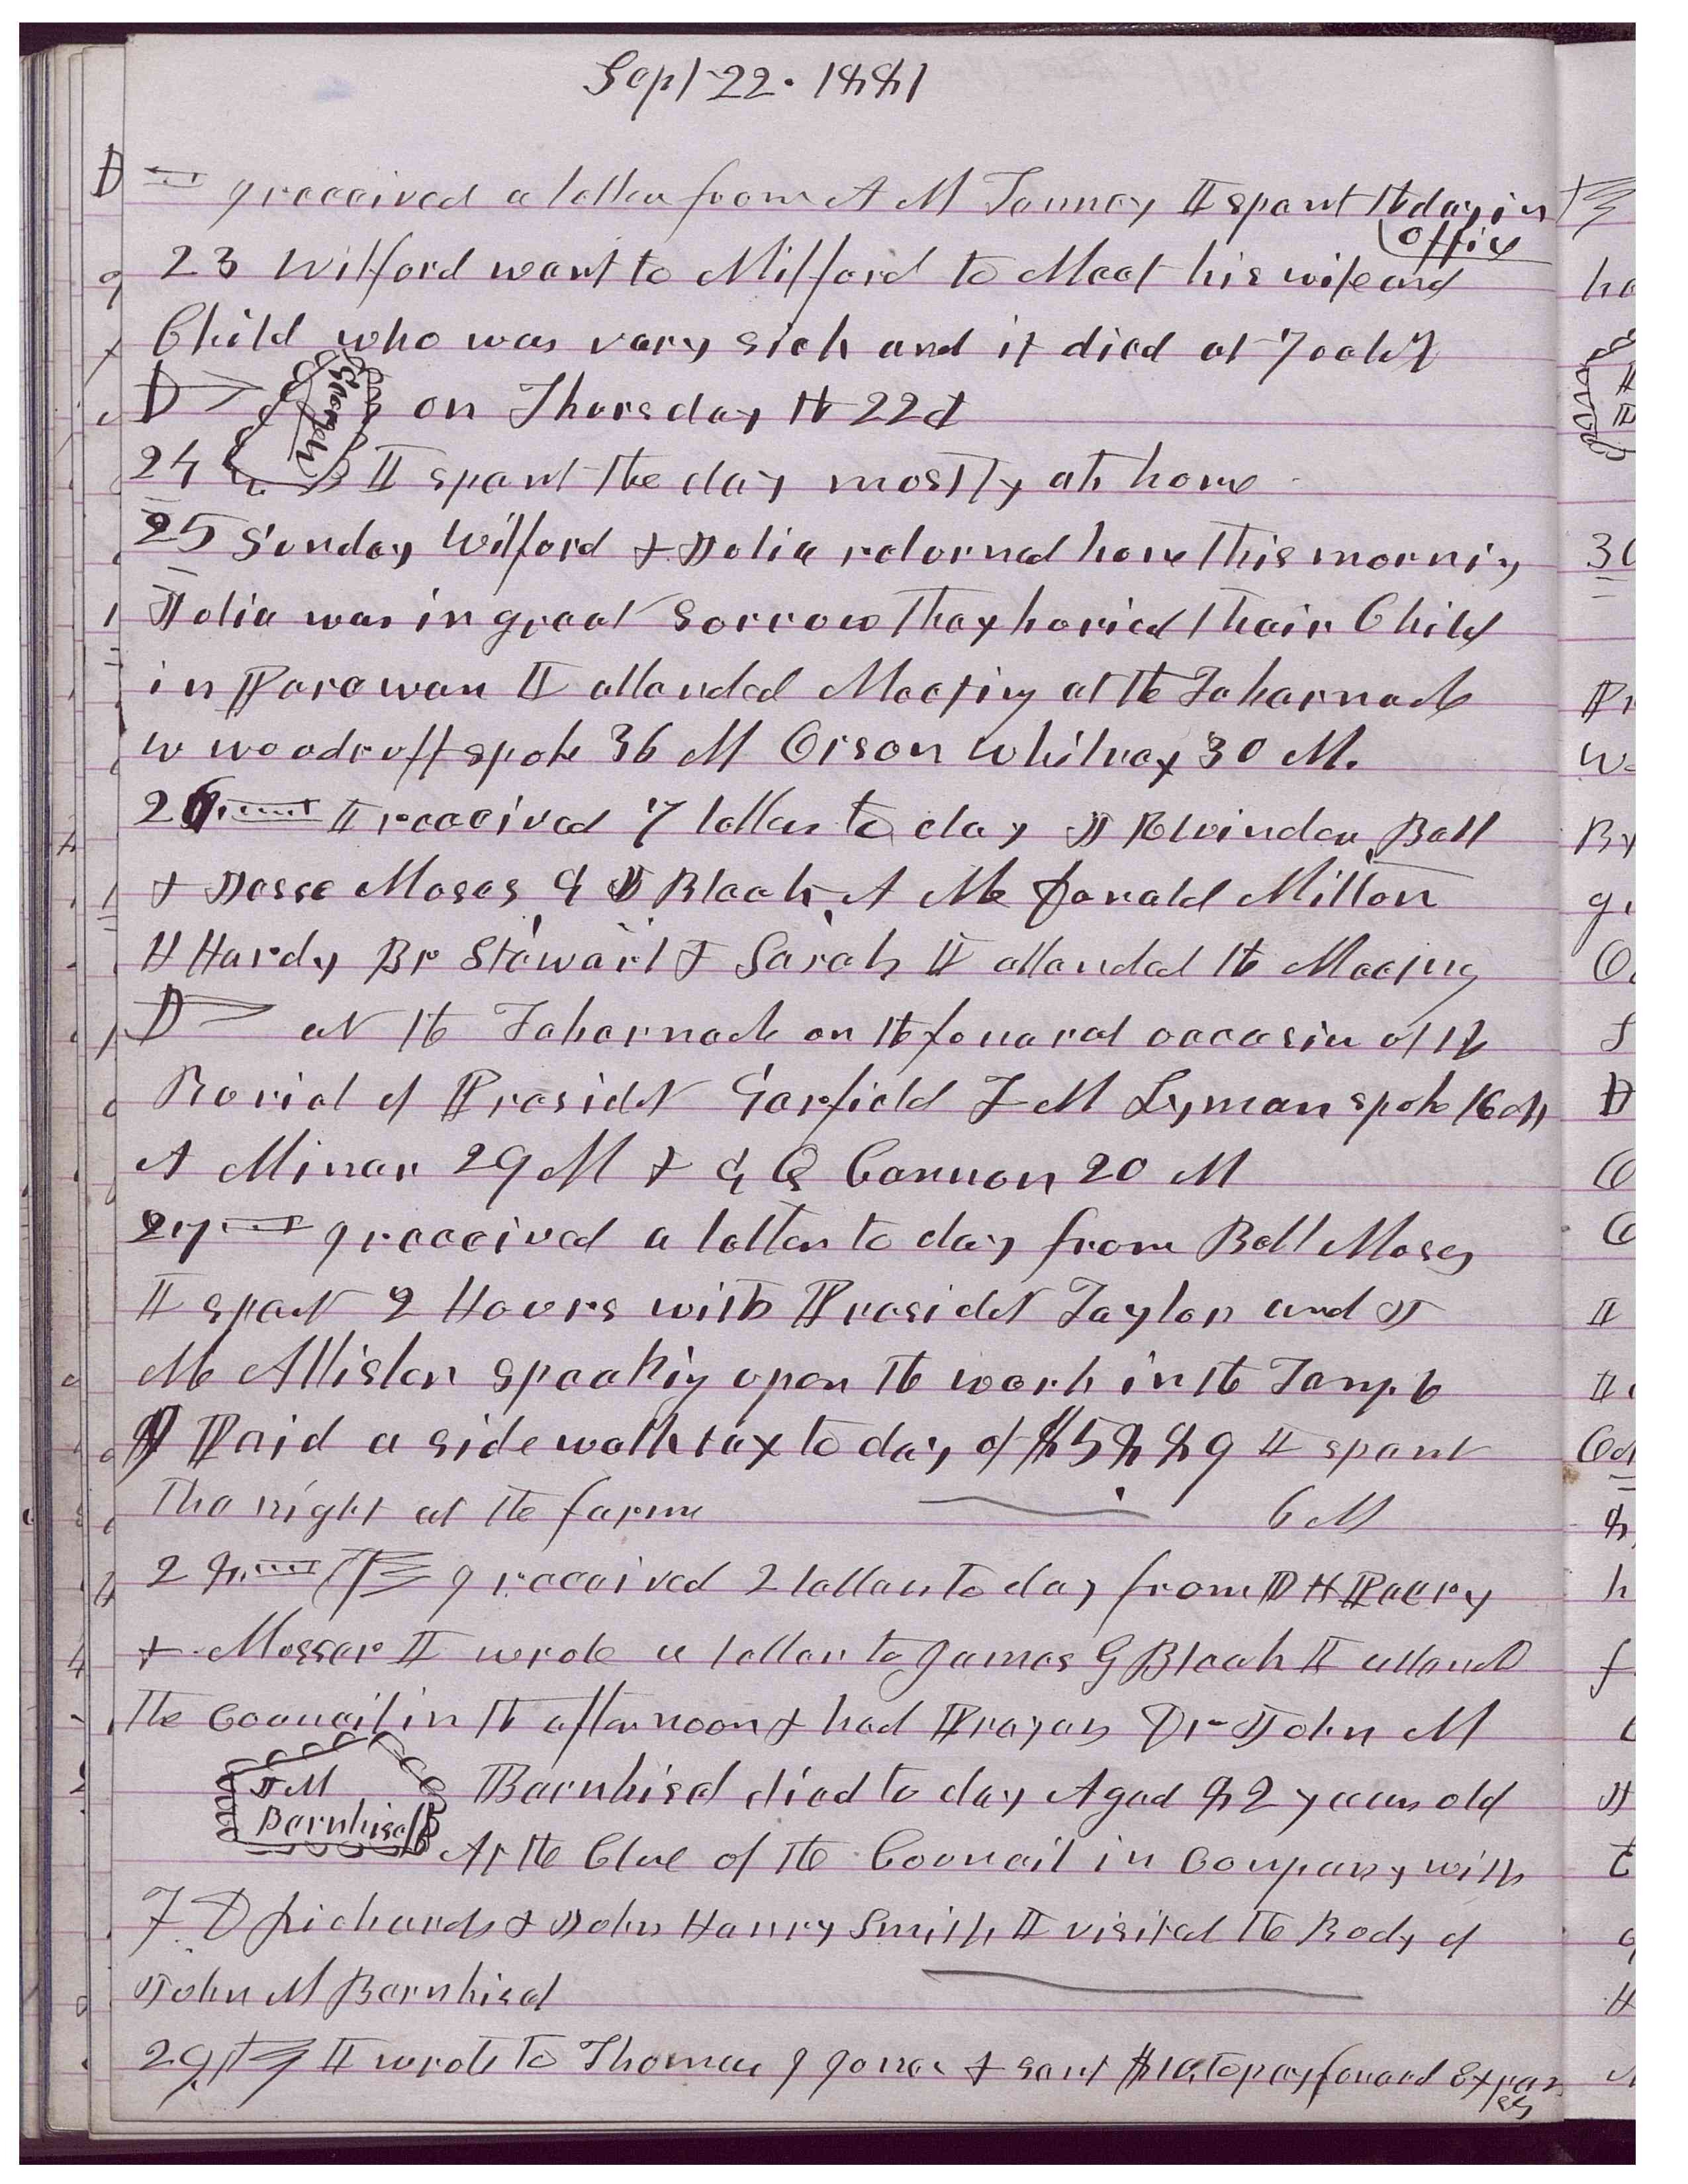 Sept 22. 1881
I received a letter from A M Tenney I spent the day in
Office
23 Wilford went to Milford to Meet his wife and
Child who was very sick and it died at 7 oclok
on Thursday the 22d
24 I spent the day mostly at home
25 Sunday Wilford & Julia returned home this morning
Julia was in great Sorrow They buried their Child
in Parowan I attended Meeting at the Tabernacle
W Woodruff spoke 36 M Orson Whitney 30 M.
26 I received 7 letters to day J R Winder, Bell
& Jesse Moses G J Bleak, A Mc Donald Milton
H Hardy Br Stewart & Sarah I attended the Meeting
at the Tabernacle on the funeral occasin of the
Burial of Presidet Garfield F M Lyman spoke 16 M
A Miner 29 M & G Q Cannon 20 M
27 I received a letter to day from Bell Moses
I spent 2 Hours with President Taylor and J
Mc Allister speaking upon the work in the Temple
I Paid a side walk tax to day of $58 89 I spent
The night at the farm 6 M
28 I received 2 letters to day from D H Peery
& Musser I wrote a letter to James G Bleak I attend
the Council in the afternoon & had Prayers Dr John M
J M
Bernhisel
Bernhisel died to day Aged 82 years old
At the Close of the Council in Company with
F D Richards & John Henry Smith I visited the Body of
John M Bernhisel
29 I wrote to Thomas J Jones & sent $10, to pay funeral Expen
ses